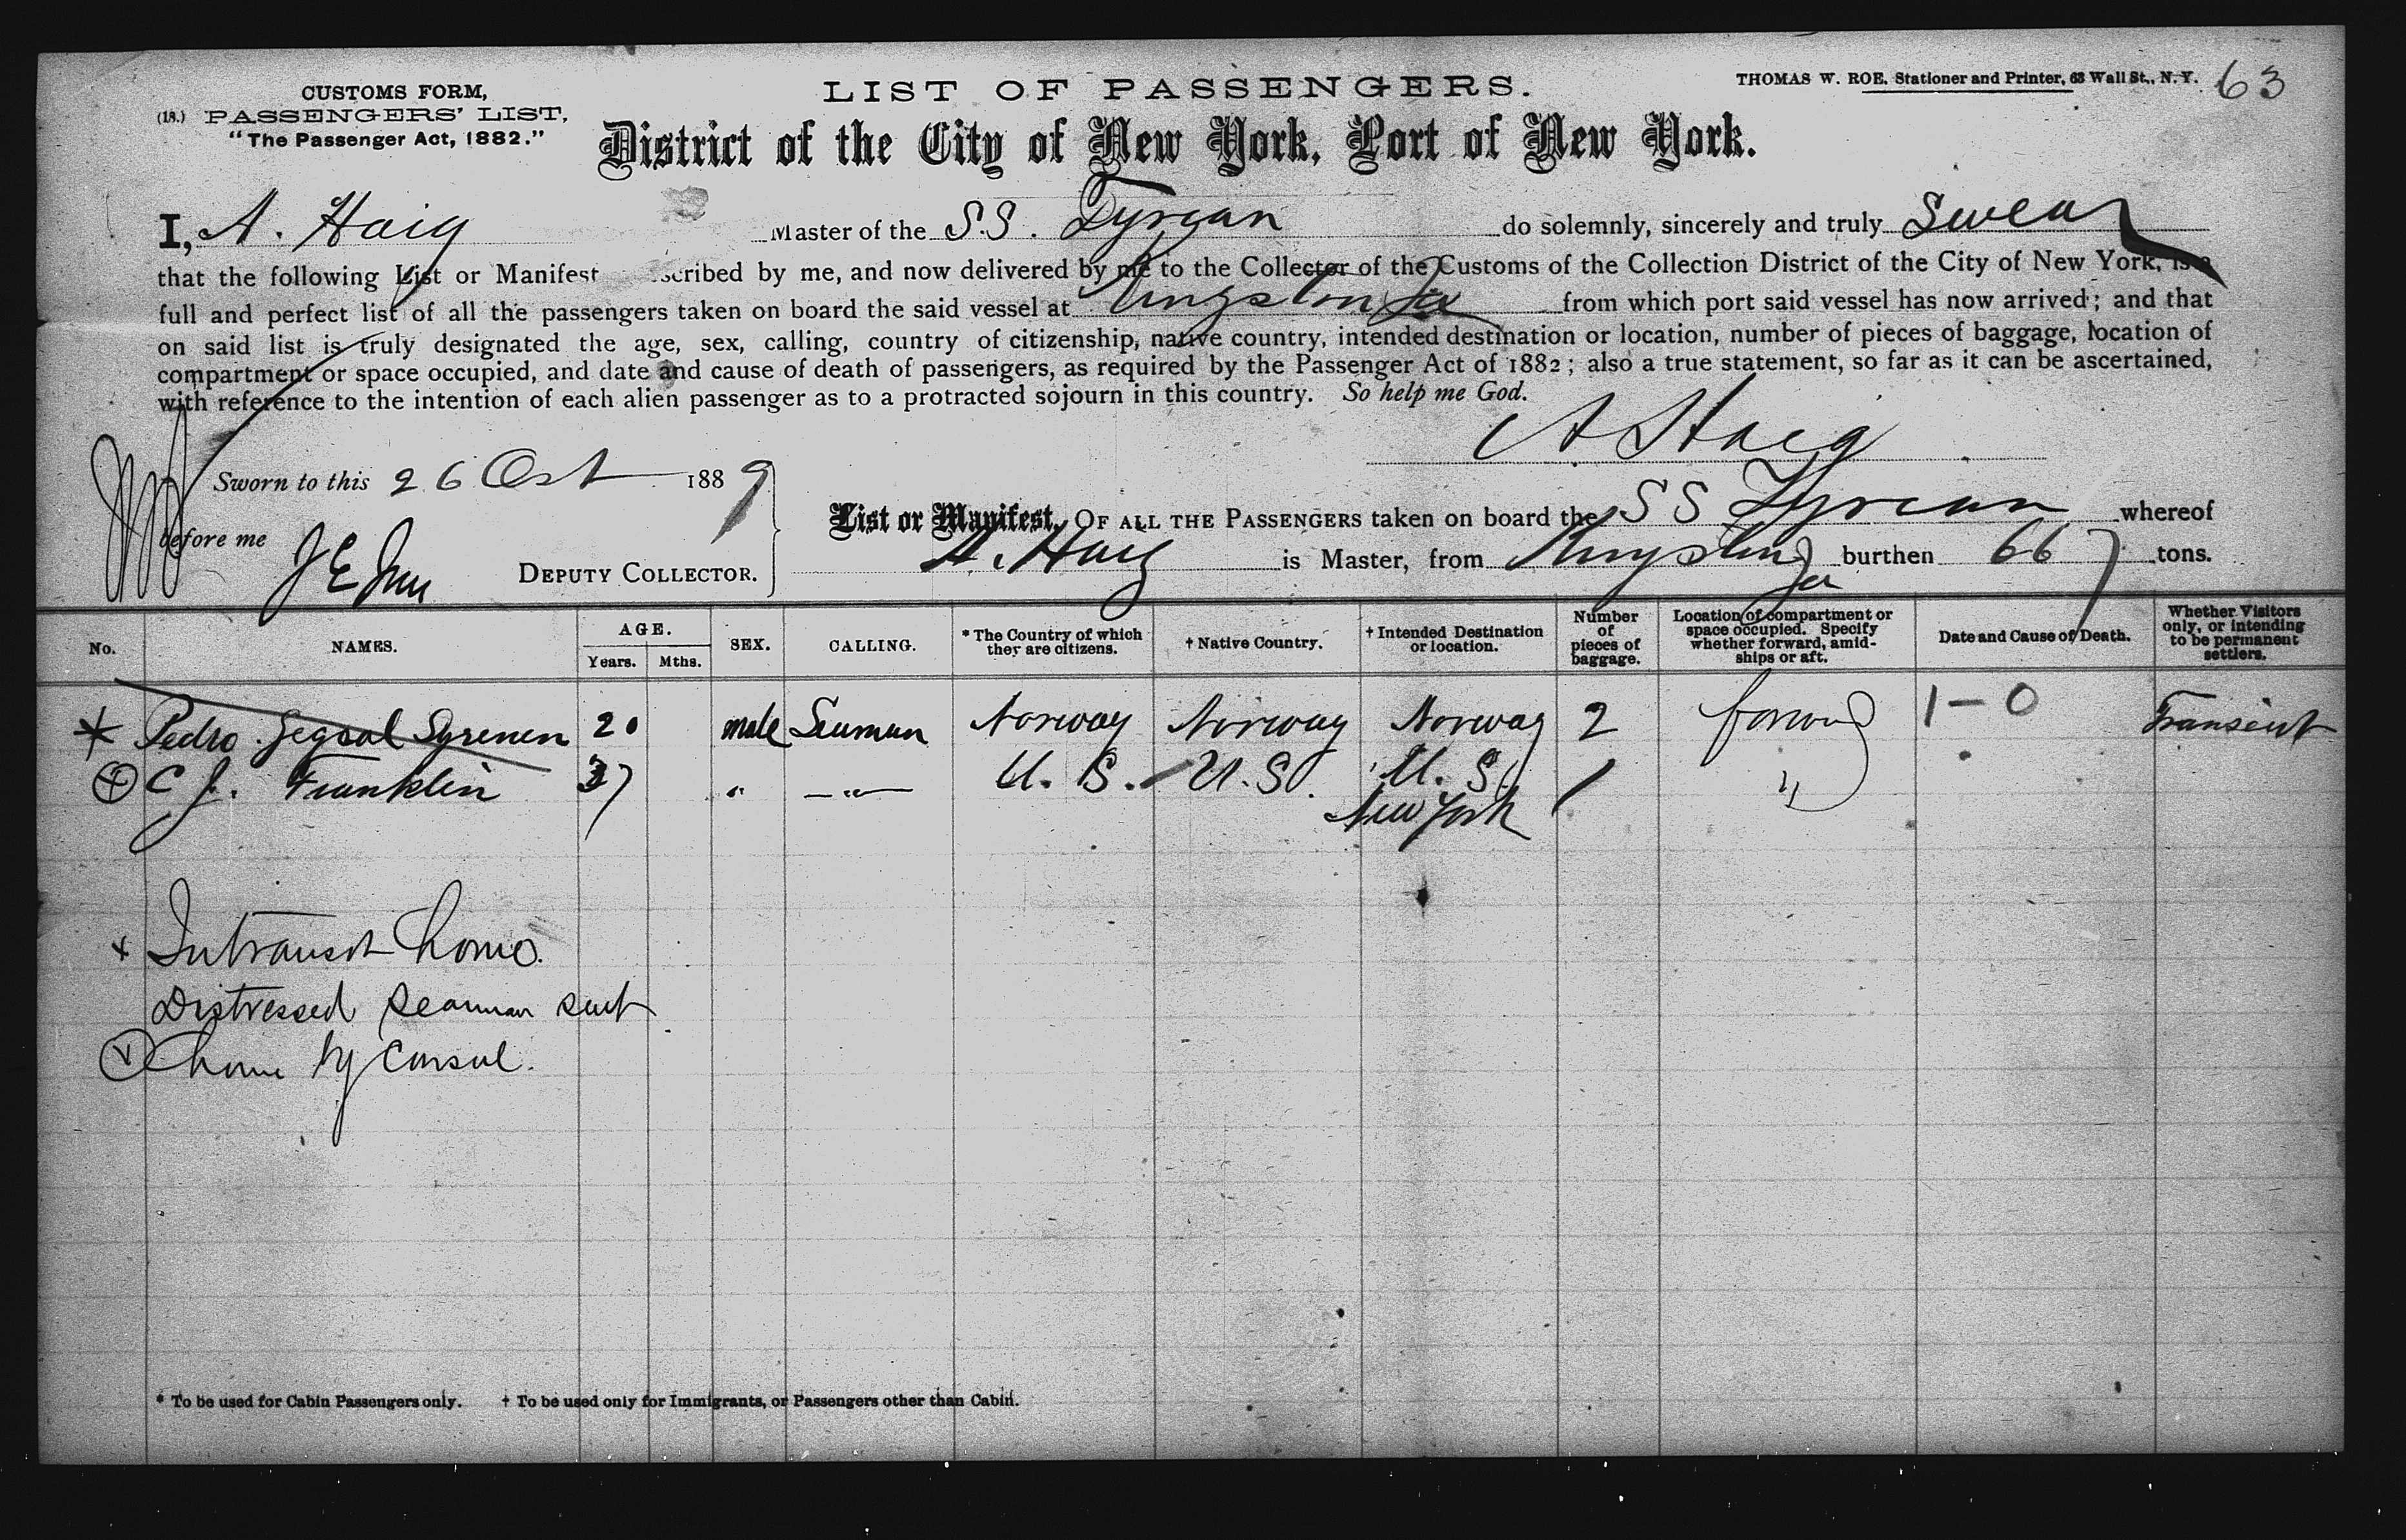 CUSTOMS FORM,
(18.) PASSENGERS' LIST,
"The Passenger Act, 1882."
LIST OF PASSENGERS.
THOMAS W. ROE, Stationer and Printer, 63 Wall St., N.Y.
63
District of the City of New York, Port of New York.
I, A. Haig Master of the S.S. Tyrian do solemnly, sincerely and truly Swear
that the following List or Manifest scribed by me, and now delivered by me to the Collector of the Customs of the Collection District of the City of New York, is a
full and perfect list of all the passengers taken on board the said vessel at Kingston Ja from which port said vessel has now arrived; and that
on said list is truly designated the age, sex, calling, country of citizenship, native country, intended destination or location, number of pieces of baggage, location of
compartment or space occupied, and date and cause of death of passengers, as required by the Passenger Act of 1882; also a true statement, so far as it can be ascertained,
with reference to the intention of each alien passenger as to a protracted sojourn in this country. So help me God.
A Haig
Sworn to this 26 Oct 1889
before me
DEPUTY COLLECTOR.
List or Manifest, OF ALL THE PASSENGERS taken on board the SS Tyrian whereof
A. Haig is Master, from Kingston Ja burthen 667 tons.
No. NAMES. AGE. Years. Mths. SEX. CALLING. * The Country of which they are citizens. † Native Country. † Intended Destination or location. Number of pieces of baggage. Location of compartment or space occupied. Specify whether forward, amidships or aft. Date and Cause of Death. Whether Visitors only, or intending to be permanent settlers.
* Pedro 20 male Seaman Norway Norway Norway 2 forward 1-0 Transient
C J. Franklin 37 " — " — U. S. U. S. U. S. New York 1 "
x Intransit home.
Distressed seaman sent
home by Consul.
* To be used for Cabin Passengers only. † To be used only for Immigrants, or Passengers other than Cabin.